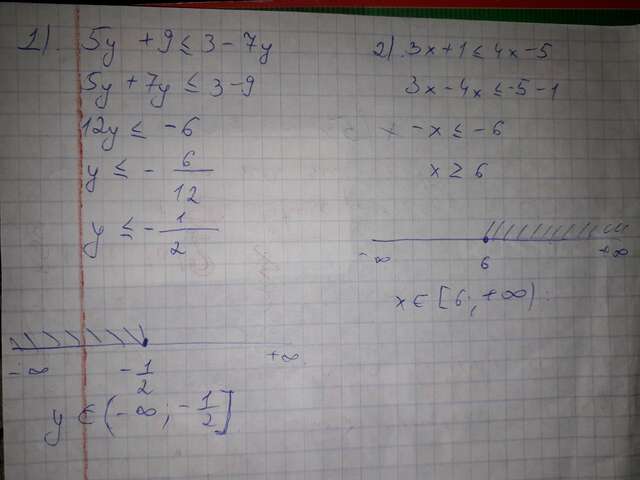 1). 5y + 9 ≤ 3 - 7y
5y + 7y ≤ 3 - 9
12y ≤ -6
y ≤ - 6/12
y ≤ - 1/2
-∞ - 1/2 +∞
y ∈ (-∞; - 1/2]
2). 3x + 1 ≤ 4x - 5
3x - 4x ≤ -5 - 1
-x ≤ -6
x ≥ 6
-∞ 6 +∞
x ∈ [6; +∞).